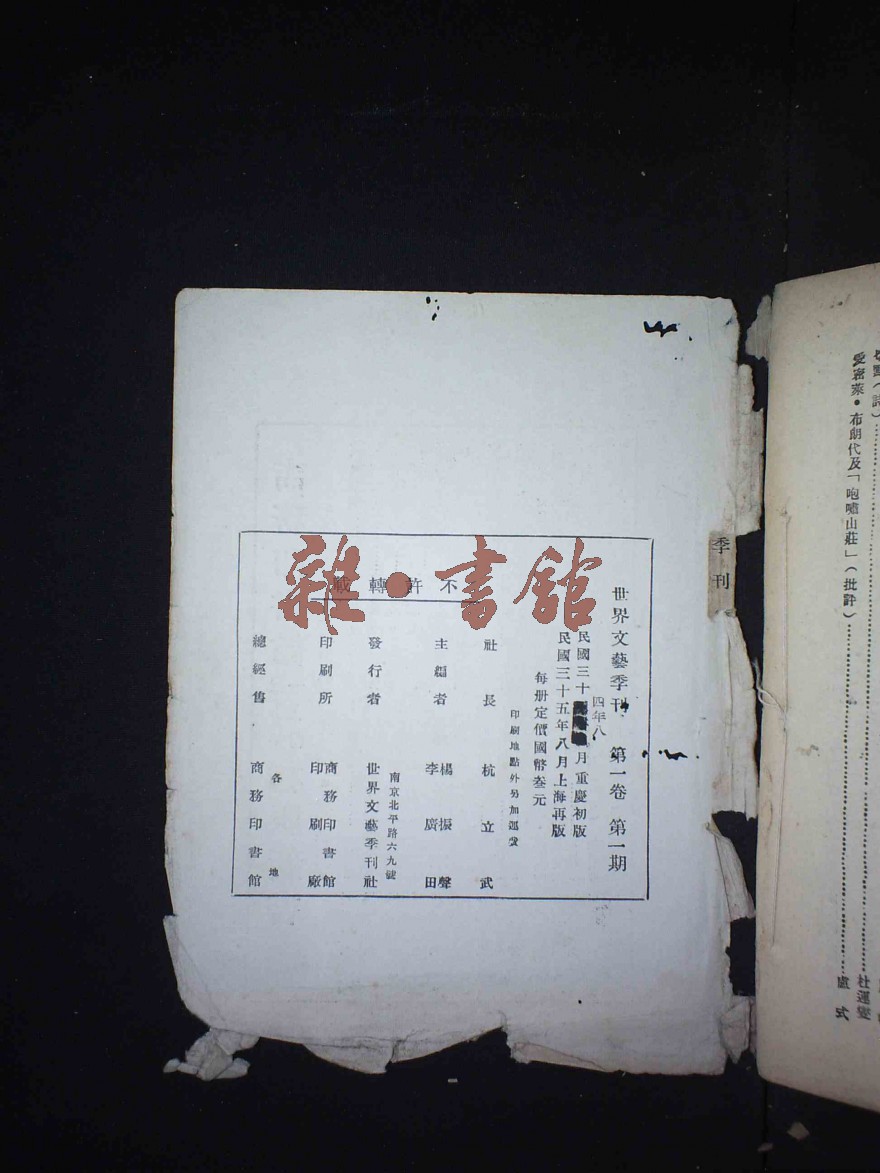 世界文藝季刊 第一卷 第一期
民國三十四年八月重慶初版
民國三十五年八月上海再版
每册定價國幣叁元
印刷地點外另加運費
不許轉載
社長 杭立武
主編者 楊振聲
李廣田
發行者 世界文藝季刊社
南京北平路六九號
印刷所 商務印書館
印刷廠
總經售 各地
商務印書館
雜·書館
季刊
(詩)
杜運燮
愛密萊·布朗代及「咆嘯山莊」(批評)
盧式